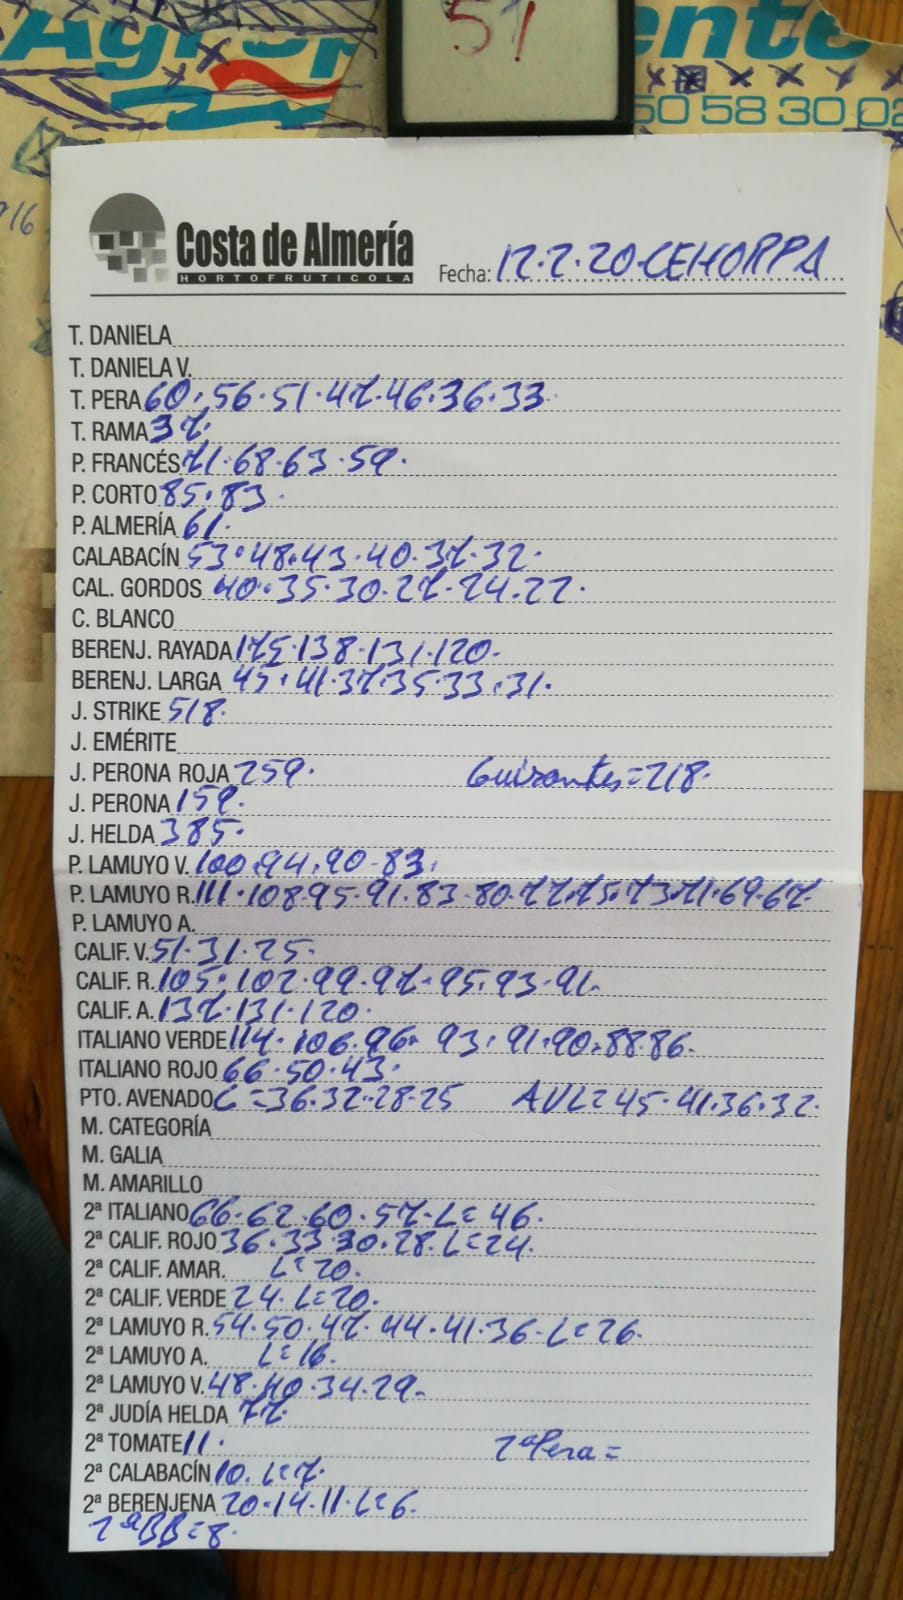 51
50 58 30 02
Costa de Almería
HORTOFRUTICOLA
Fecha: 12.2.20.CEHORPA
T. DANIELA
T. DANIELA V.
T. PERA 60.56.51.47.46.36.33
T. RAMA 37.
P. FRANCÉS 71.68.63.59.
P. CORTO 85.83.
P. ALMERÍA 61.
CALABACÍN 53.48.43.40.37.32.
CAL. GORDOS 40.35.30.27.24.22.
C. BLANCO
BERENJ. RAYADA 175.138.131.120.
BERENJ. LARGA 45.41.37.35.33.31.
J. STRIKE 518.
J. EMÉRITE
J. PERONA ROJA 259. Guixantes=218.
J. PERONA 159.
J. HELDA 385.
P. LAMUYO V. 100.94.90.83.
P. LAMUYO R. 111.108.95.91.83.80.77.75.73.71.69.67.
P. LAMUYO A.
CALIF. V. 51.31.25.
CALIF. R. 105.102.99.97.95.93.91.
CALIF. A. 137.131.120.
ITALIANO VERDE 114.106.96.93.91.90.88.86.
ITALIANO ROJO 66.50.43.
PTO. AVENADO C=36.32.28.25 AVL=45.41.36.32.
M. CATEGORÍA
M. GALIA
M. AMARILLO
2ª ITALIANO 66.62.60.57.L=46.
2ª CALIF. ROJO 36.33.30.28.L=24.
2ª CALIF. AMAR. L=20.
2ª CALIF. VERDE 24.L=20.
2ª LAMUYO R. 54.50.47.44.41.36.L=26.
2ª LAMUYO A. L=16.
2ª LAMUYO V. 48.40.34.29.
2ª JUDÍA HELDA 77.
2ª TOMATE 11. 2ªPera=
2ª CALABACÍN 10.L=7.
2ª BERENJENA 20.14.11.L=6.
2ªBB=8.